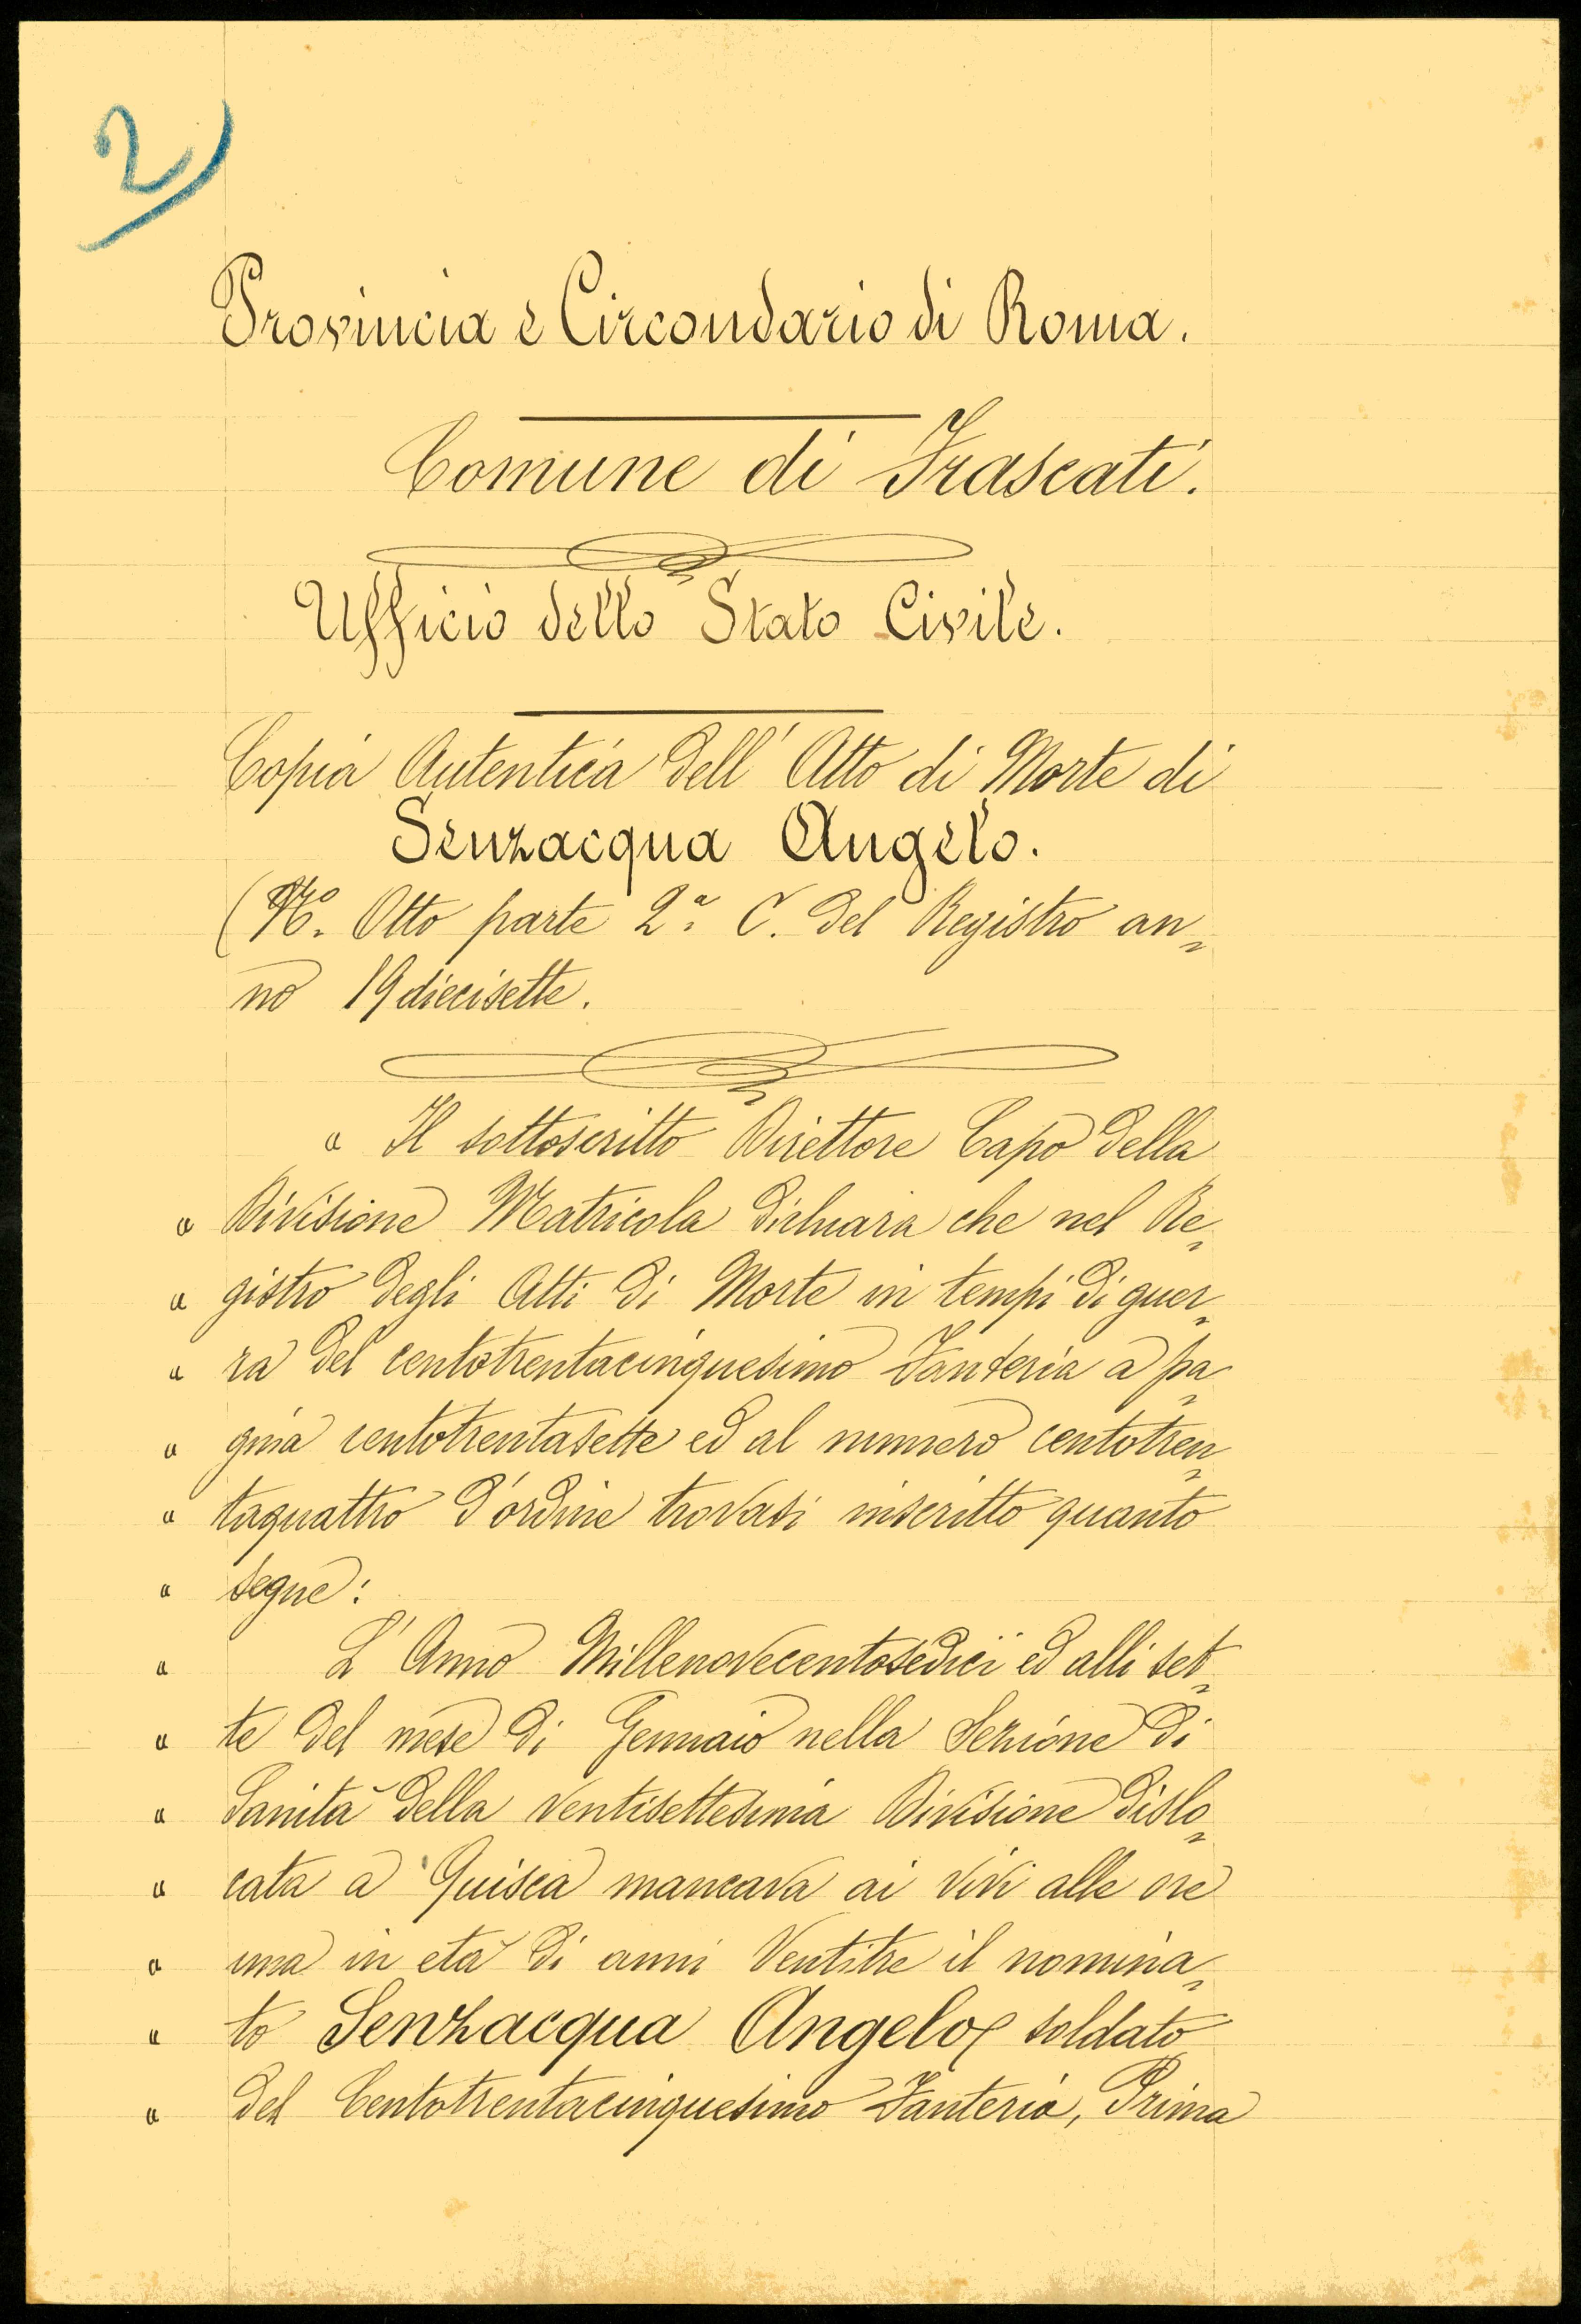 2)
Provincia e Circondario di Roma.
Comune di Frascati.
Ufficio dello Stato Civile.
Copia Autentica dell' Atto di Morte di
Senzacqua Angelo.
(No. Otto parte 2a C. del Registro an=
no 19diecisette.
" Il sottoscritto Direttore Capo della
" Divisione Matricola dichiara che nel Re=
" gistro degli Atti di Morte in tempi di guer=
" ra del centotrentacinquesimo Fanteria a pa=
" gina centotrentasette ed al numero centotren=
" taquattro d'ordine trovasi inscritto quanto
" segue:
" L'Anno Millenovecentosedici ed alli set=
" te del mese di Gennaio nella Sezione di
" Sanità della ventisettesima Divisione dislo=
" cata a Quisca mancava ai vivi alle ore
" una in età di anni Ventitre il nomina=
" to Senzacqua Angelo, soldato
" del Centotrentacinquesimo Fanteria, Prima